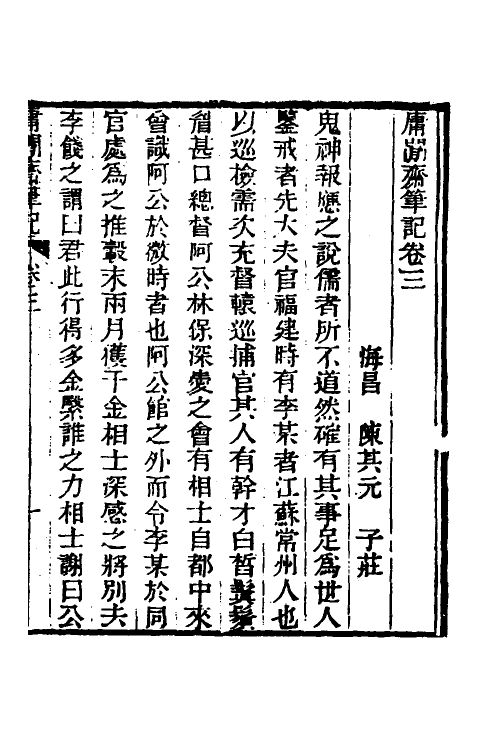 庸閒齋筆記卷三
海昌 陳其元 子莊
鬼神報應之說儒者所不道然確有其事足爲世人
鑒戒者先大夫官福建時有李某者江蘇常州人也
以巡檢需次充督轅巡捕官其人有幹才白皙鬑鬑
甚口總督阿公林保深愛之會有相士自都中來
曾識阿公於微時者也阿公館之外而令李某於同
官處爲之推轂未兩月獲千金相士深感之將別去
李餞之謂曰君此行得多金繄誰之力相士謝曰公
庸閒齋筆記 卷三 一